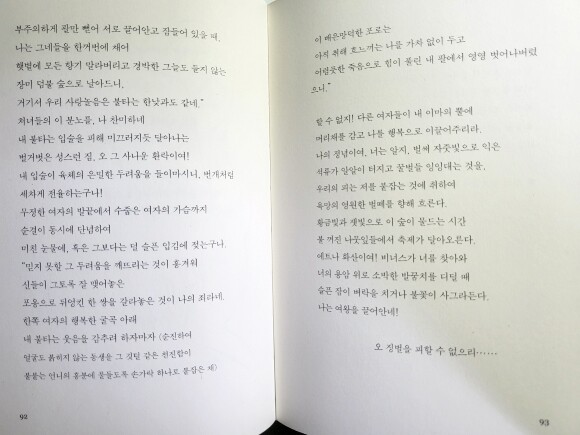 부주의하게 팔만 뻗어 서로 끌어안고 잠들어 있을 때,
나는 그네들을 한꺼번에 채어
햇볕에 모든 향기 말라버리고 경박한 그늘도 들지 않는
장미 덤불 숲으로 날아드니,
거기서 우리 사랑놀음은 불타는 한낮과도 같네."
처녀들의 이 분노를, 나 찬미하네
내 불타는 입술을 피해 미끄러지듯 달아나는
벌거벗은 성스런 짐, 오 그 사나운 환락이여!
내 입술이 육체의 은밀한 두려움을 들이마시니, 번개처럼
세차게 전율하는구나!
무정한 여자의 발끝에서 수줍은 여자의 가슴까지
순결이 동시에 단념하여
미친 눈물에, 혹은 그보다는 덜 슬픈 입김에 젖는구나.
"믿지 못할 그 두려움을 깨뜨리는 것이 흥겨워
신들이 그토록 잘 맺어놓은
포옹으로 뒤엉킨 한 쌍을 갈라놓은 것이 나의 죄라네.
한쪽 여자의 행복한 굴곡 아래
내 불타는 웃음을 감추려 하자마자 (순진하여
얼굴도 붉히지 않는 동생을 그 깃털 같은 천진함이
불붙는 언니의 흥분에 물들도록 손가락 하나로 붙잡은 채)
92
이 배은망덕한 포로는
아직 취해 흐느끼는 나를 가차 없이 두고
어렴풋한 죽음으로 힘이 풀린 내 팔에서 영영 벗어나버렸
으니."
할 수 없지! 다른 여자들이 내 이마의 뿔에
머리채를 감고 나를 행복으로 이끌어주리라.
나의 정념이여, 너는 알지, 벌써 자줏빛으로 익은
석류가 알알이 터지고 꿀벌들 잉잉대는 것을,
우리의 피는 저를 붙잡는 것에 취하여
욕망의 영원한 벌떼를 향해 흐른다.
황금빛과 잿빛으로 이 숲이 물드는 시간
불 꺼진 나뭇잎들에서 축제가 달아오른다.
에트나 화산이여! 비너스가 너를 찾아와
너의 용암 위로 소박한 발꿈치를 디딜 때
슬픈 잠이 벼락을 치거나 불꽃이 사그라든다.
나는 여왕을 끌어안네!
오 징벌을 피할 수 없으리……
93